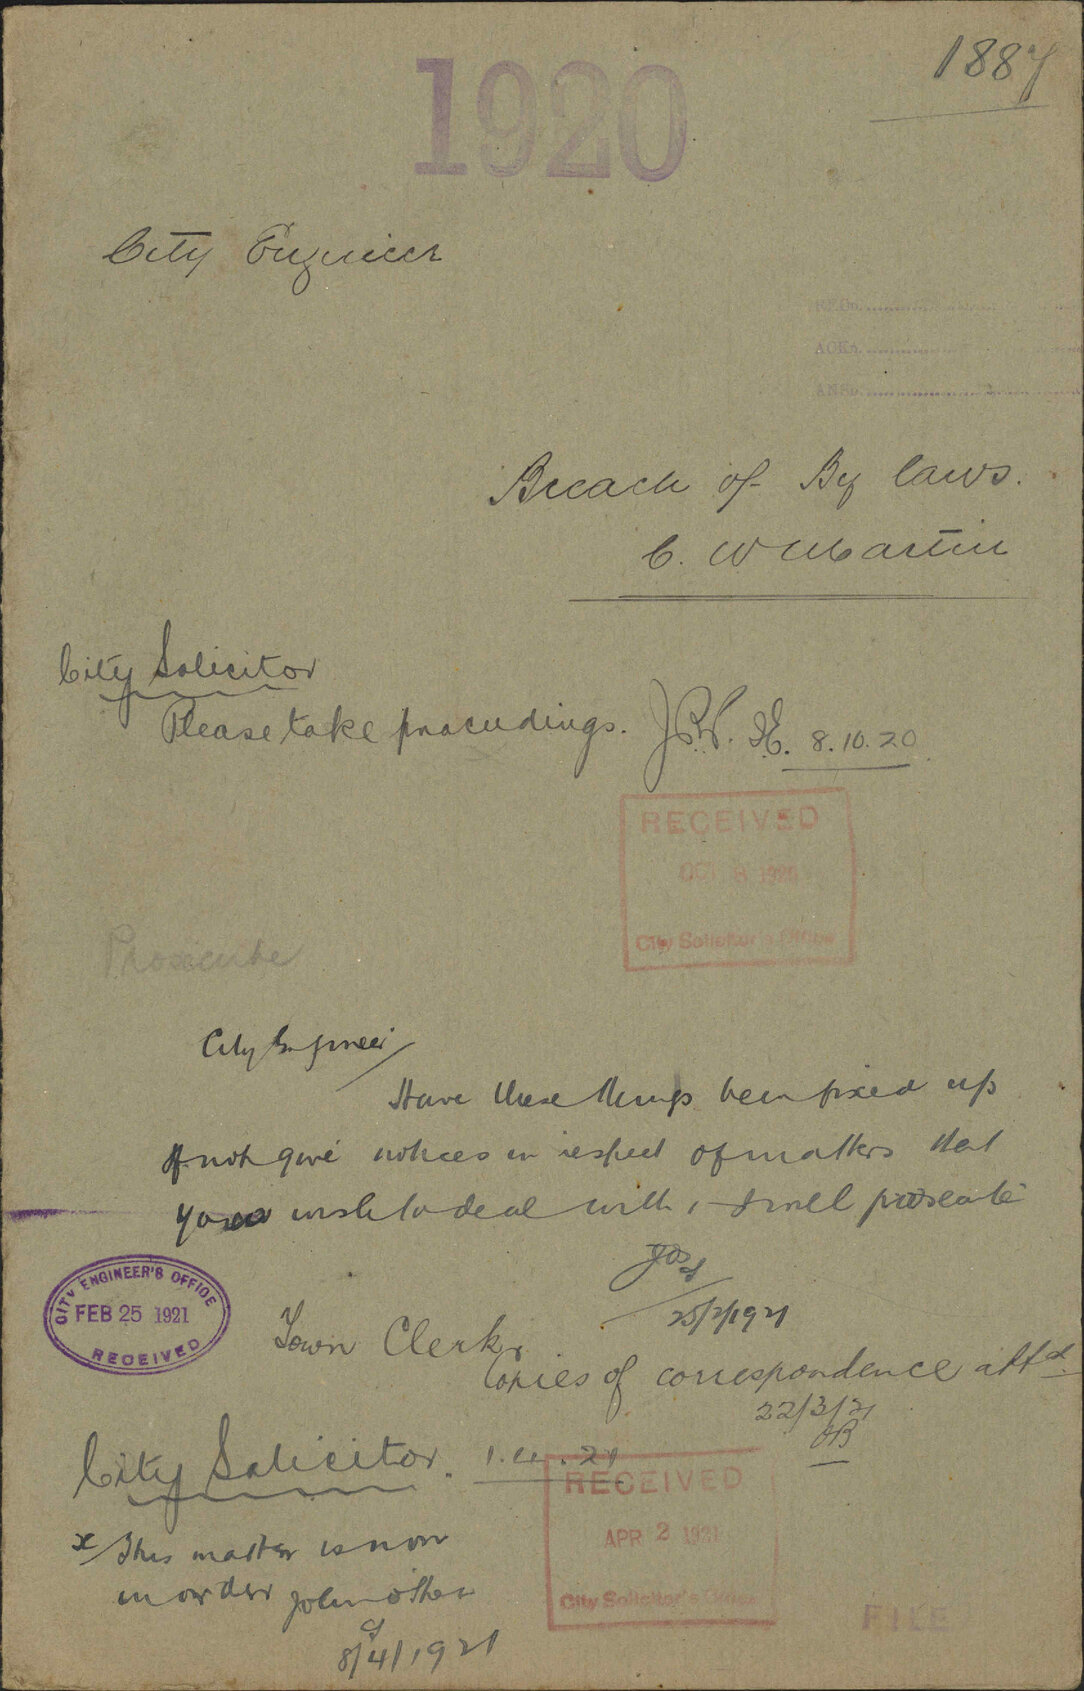 1920
1887
City Engineer
RECD.
ACKd.
ANSd.
Breach of By laws.
C. W Martin
City Solicitor
Please take proceedings.
8.10.20
RECEIVED
OCT 8 1920
City Solicitor's Office
Prosecute
City Engineer
Have these things been fixed up
If not give notices in respect of matters that
you wish to deal with & I will prosecute
25/2/1921
CITY ENGINEER'S OFFICE
FEB 25 1921
RECEIVED
Town Clerk,
Copies of correspondence attd
22/3/21
City Solicitor. 1.4.21
RECEIVED
APR 2 1921
City Solicitor's Office
x This matter is now
in order
8/4/1921
FILE